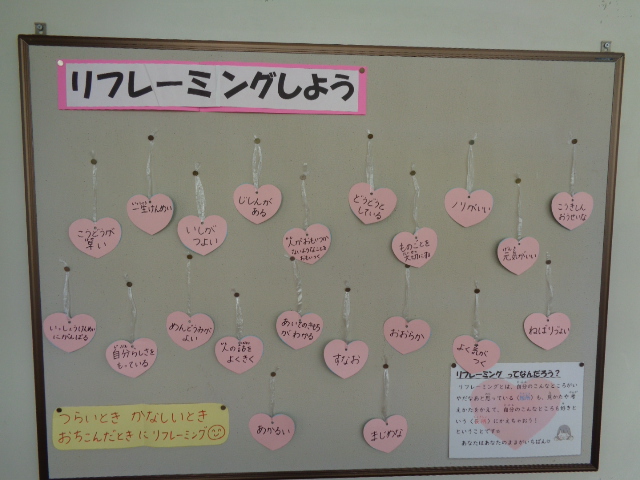 リフレーミングしよう
こうどうが
早い
一生けんめい
いしが
つよい
じしんが
ある
人がおもいつか
ないようなことを
どうどうと
している
ものごとを
大切にする
ノリがいい
元気がいい
こうきしん
おうせいな
いっしょうけんめい
にがんばる
自分らしさを
もっている
めんどうみが
よい
人の話を
よくきく
あいてのきもち
がわかる
すなお
おおらか
よく気が
つく
ねばりづよい
あかるい
まじめな
つらいとき かなしいとき
おちこんだときに リフレーミング
リフレーミング ってなんだろう？
リフレーミングとは、自分のこんなところがい
やだなあと思っている（短所）も、見かたや考
えかたをかえて、自分のこんなところも好きと
いう（長所）にかえちゃおう！
ということです。
あなたはあなたのままがいちばん